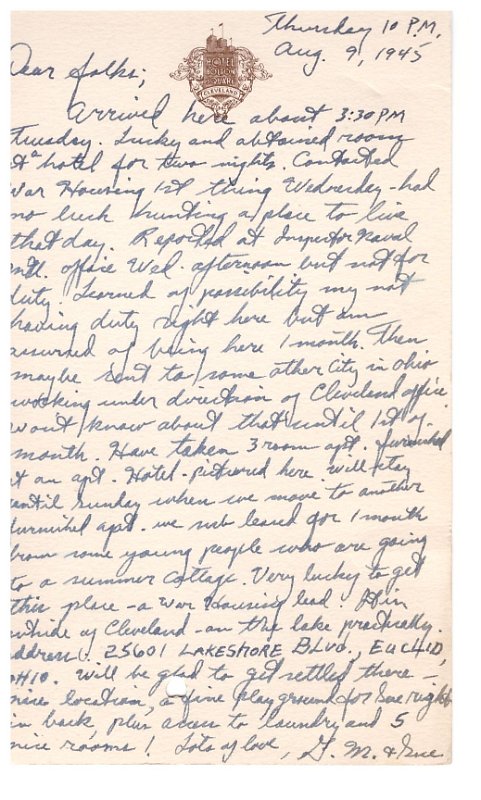 Thursday 10 P.M.
Aug. 9, 1945
HOTEL
HOLLENDEN
CLEVELAND
Dear folks;
Arrived here about 3:30 PM
Tuesday. Lucky and obtained room
at a hotel for two nights. Contacted
War Housing 1st thing Wednesday - had
no luck hunting a place to live
that day. Reported at Inspector Naval
Matl. office Wed. afternoon but not for
duty. Learned of possibility my not
having duty right here but am
assured of being here 1 month. Then
maybe sent to some other city in Ohio
working under direction of Cleveland office.
Won't know about that until 1st of
month. Have taken 3 room apt. furnished
at an apt. Hotel - pictured here. Will stay
until Sunday when we move to another
furnished apt. we sub leased for 1 month
from some young people who are going
to a summer cottage. Very lucky to get
this place - a War Housing lead. It in
outside of Cleveland - on the lake practically.
Address: 25601 LAKESHORE BLVD., EUCLID,
OHIO. Will be glad to get settled there -
nice location, a fine play ground for Sue right
in back, plus access to laundry and 5
nice rooms! Lots of love, G. M. & Sue